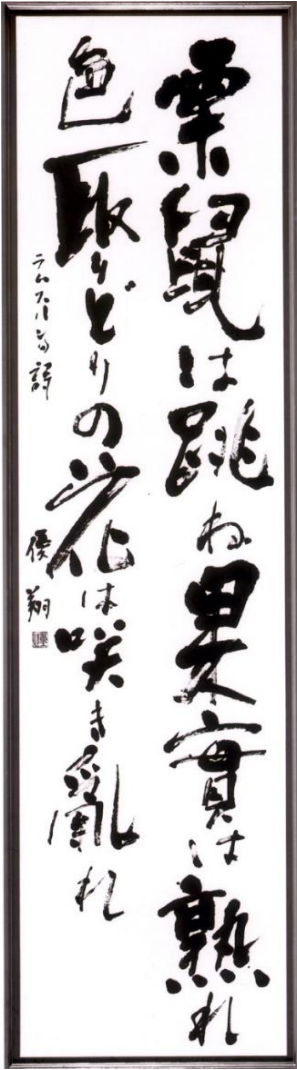 栗鼠は跳ね果實は熟れ
色取りどりの花は咲き亂れ
詩
優翔